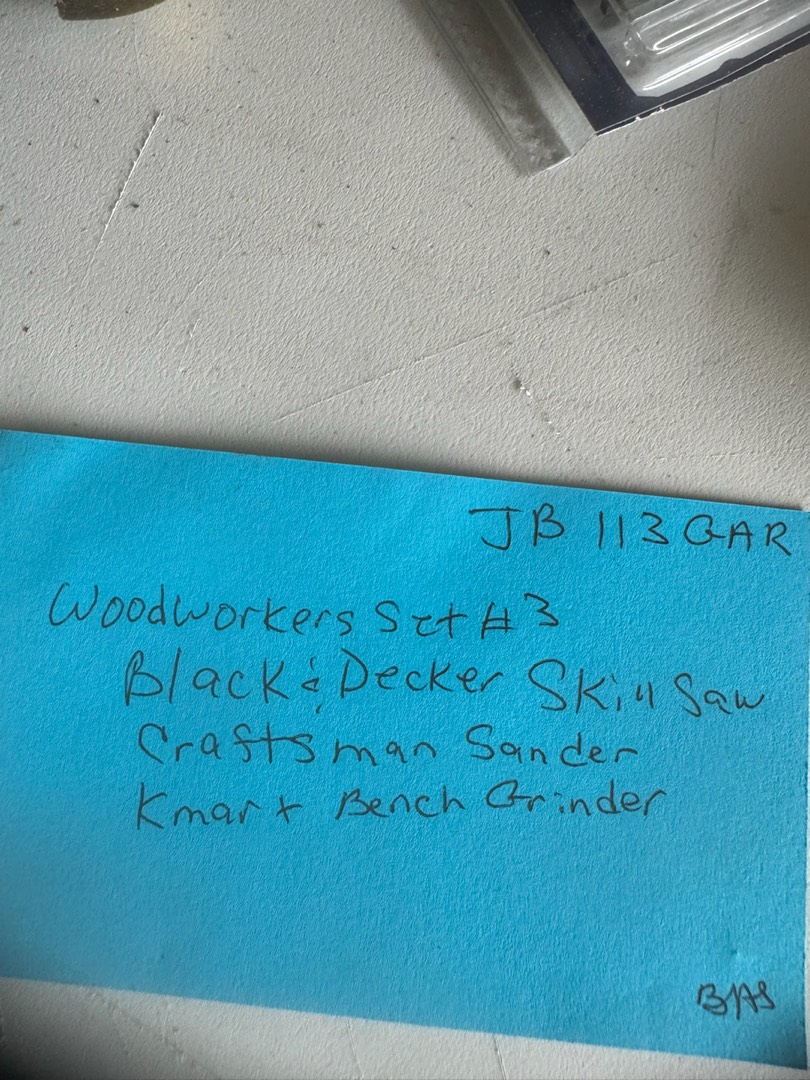 JB 113 GAR
Woodworkers Set #3
Black & Decker Skill Saw
Craftsman Sander
Kmart Bench Grinder